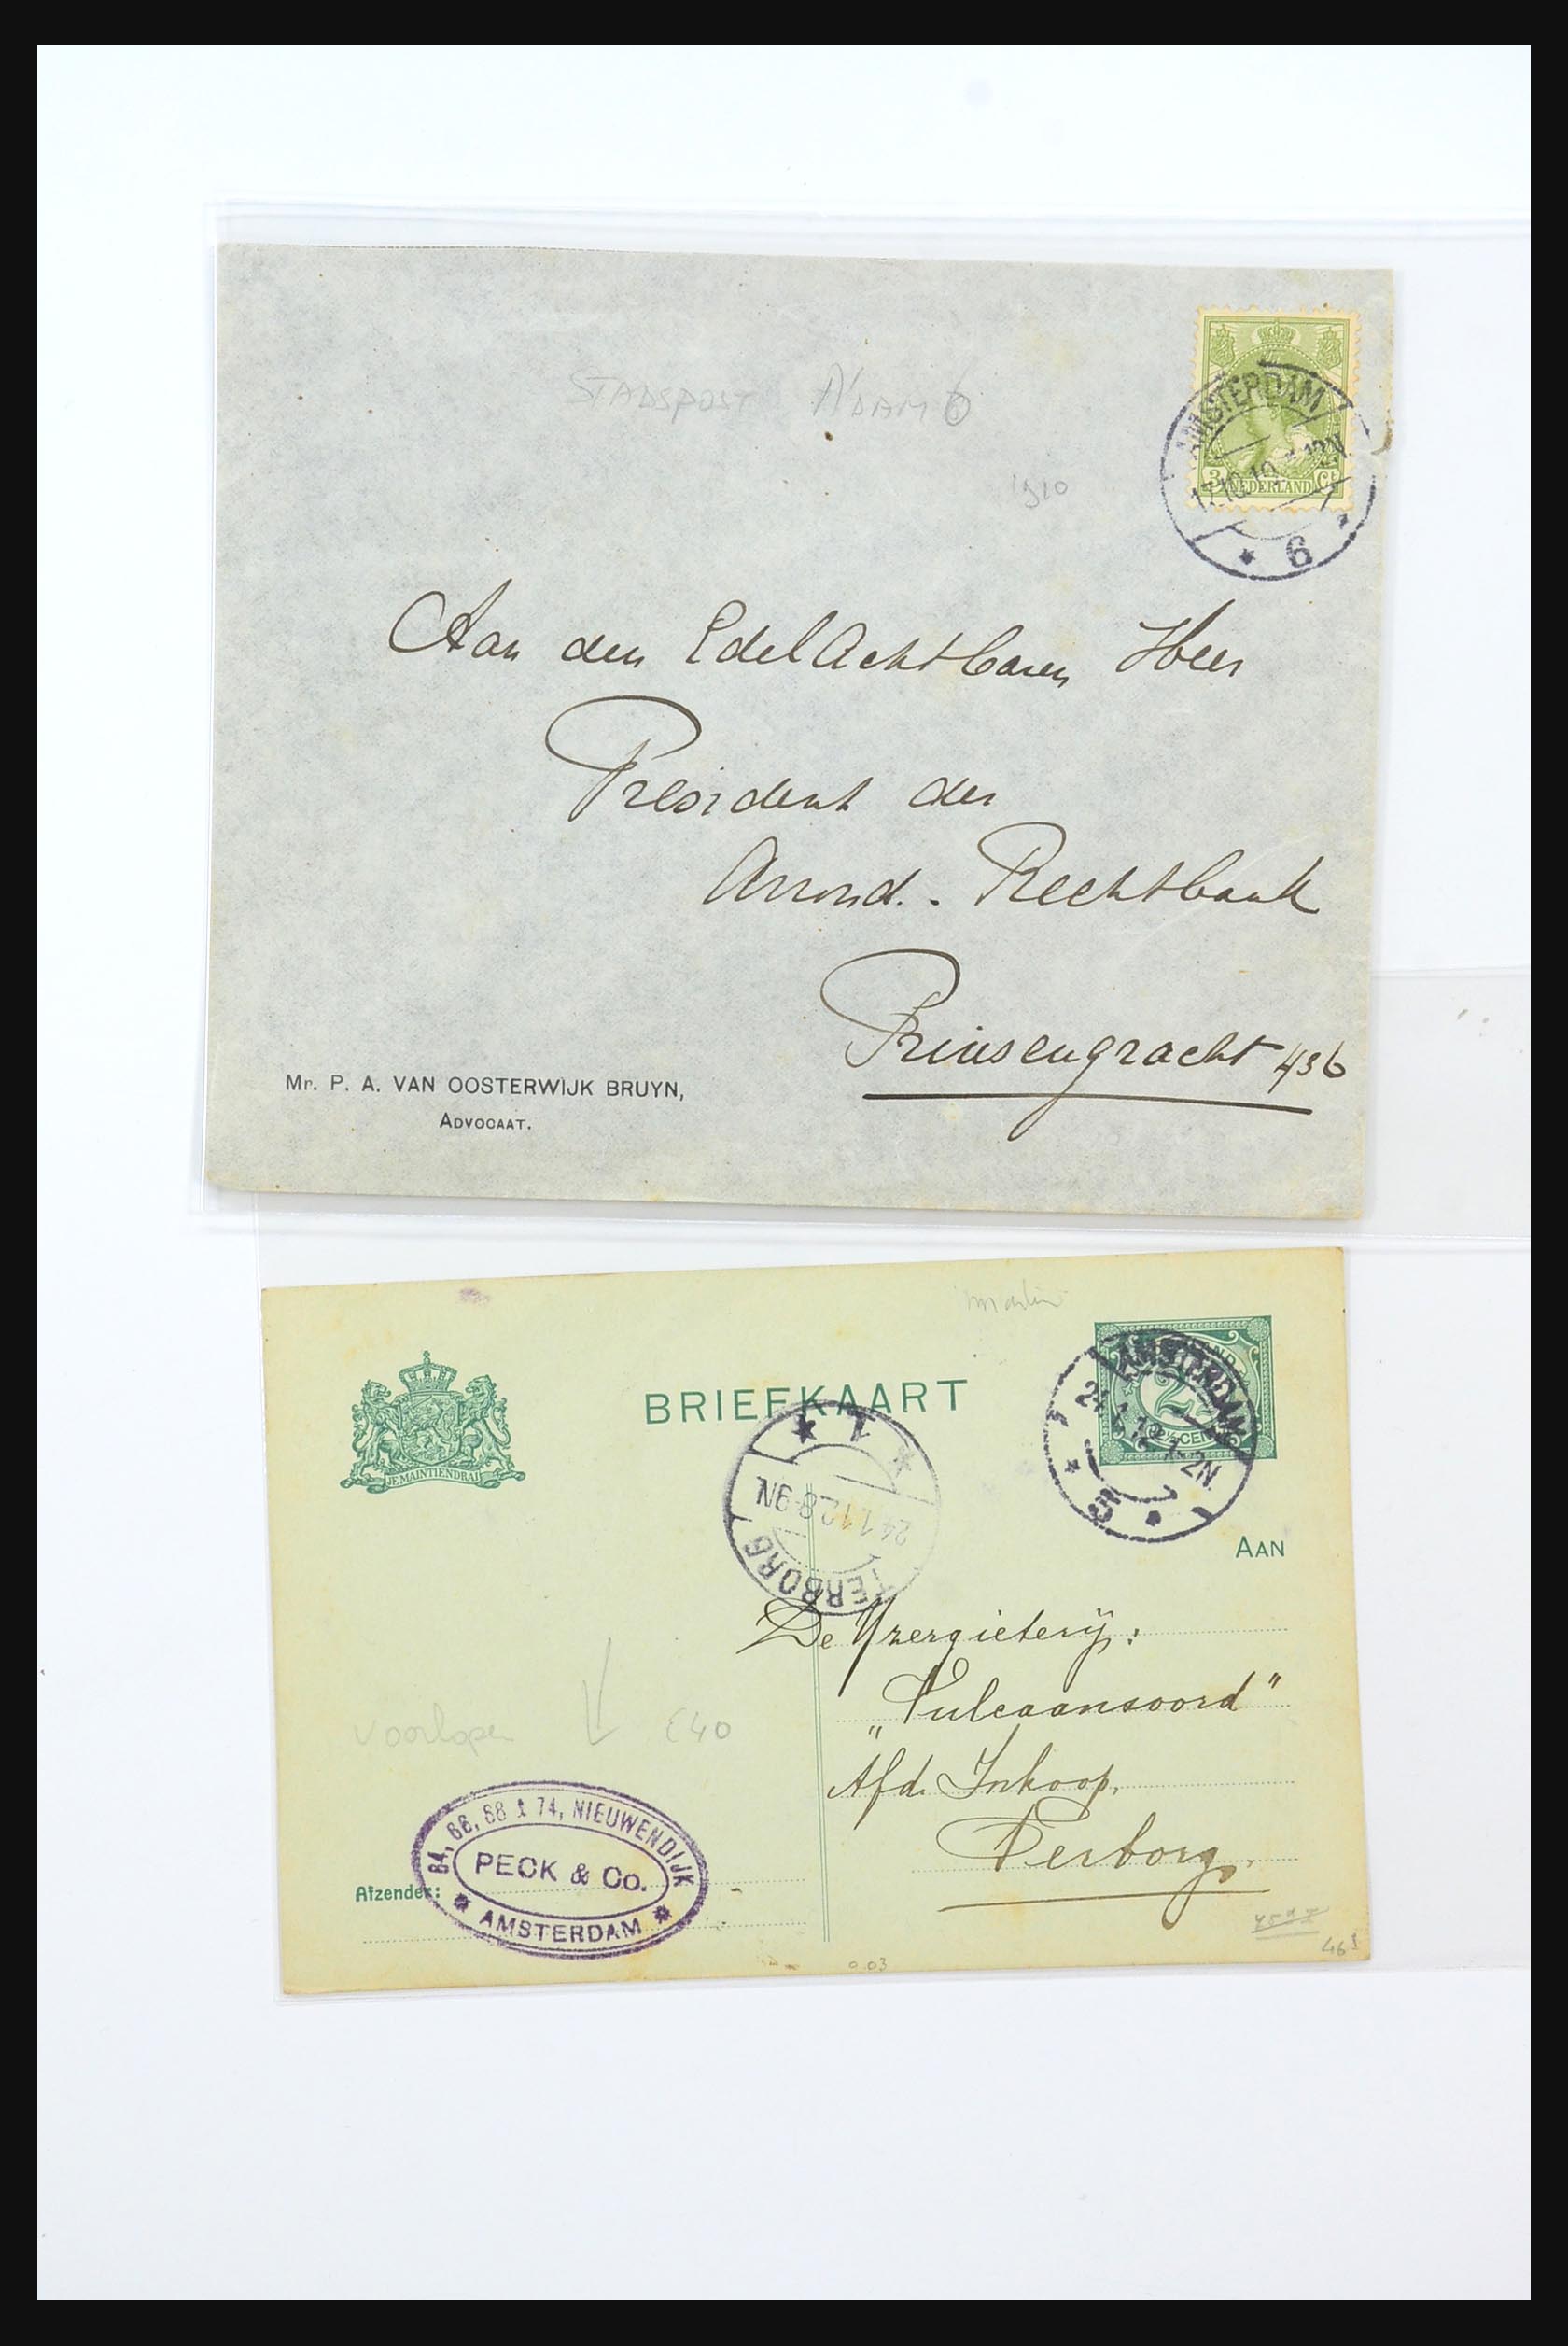 STADSPOST A'DAM 6
1910
AMSTERDAM
12N
6
3 NEDERLAND Ct
Aan den EdelAchtbaren Heer
President der
Arrond.- Rechtbank
Prinsengracht 436
Mr. P. A. VAN OOSTERWIJK BRUYN,
ADVOCAAT.
BRIEFKAART
JE MAINTIENDRAI
AMSTERDAM
24.1.12 1-2N
5
1
24.1.12 8-9N
TERBORG
AAN
De Yzergieterij:
„Vulcaansoord"
Afd. Inkoop.
Terborg.
Voorloper
€40
64, 66, 68 & 74, NIEUWENDIJK
PECK & Co.
AMSTERDAM
Afzender:
0.03